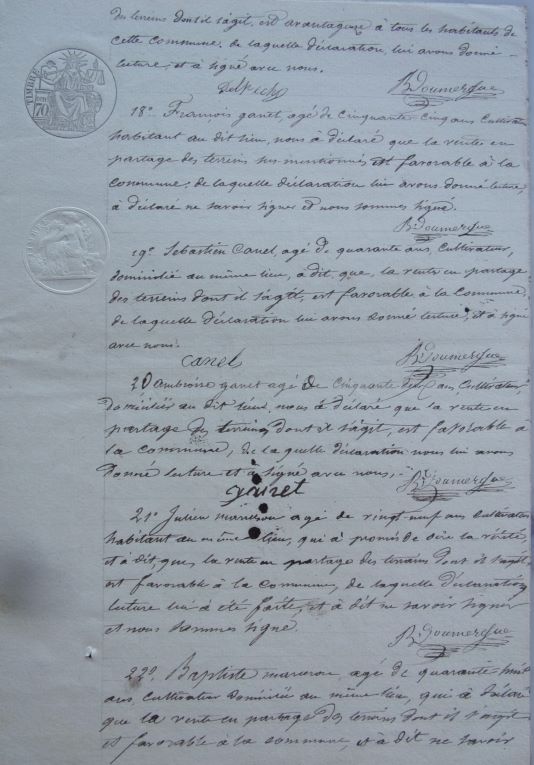 des terrains dont il s'agit, est avantageuse à tous les habitants de
cette commune. de laquelle déclaration, lui avons donné
lecture, et à signé avec nous.
Delpech B Doumergue
TIMBRE 70
18º François ganet, agé de cinquante cinq ans, Cultivateur
habitant au dit lieu, nous à déclaré que la vente en
partage des terrains sus mentionnés est favorable à la
commune; de laquelle déclaration lui avons donné lecture,
à déclaré ne savoir signer et nous sommes signé.
B Doumergue
19º Sebastien Canel, agé de quarante ans, Cultivateur,
domicilié au même lieu, à dit, que, la vente en partage
des terrains dont il s'agit, est favorable à la Commune
de laquelle déclaration lui avons donné lecture, et à signé
avec nous.
Canel B Doumergue
20 Ambroise ganet agé de cinquante deux ans, Cultivateur
domicilié au dit lieu, nous à déclaré que la vente en
partage des terrains dont il s'agit, est favorable à
la commune, de la quelle déclaration nous lui avons
donné lecture et à signé avec nous,
ganet B Doumergue
21º Julien maneron agé de vingt neuf ans Cultivateur
habitant au même lieu, qui à promis de dire la vérité,
et à dit, que, la vente en partage des terrains dont il s'agit,
est favorable à la commune, de laquelle déclaration
lecture lui à été faite, et à dit ne savoir signer
et nous sommes signé.
B Doumergue
22º Baptiste maneron, agé de quarante huit
ans, Cultivateur domicilié au même lieu, qui à déclaré
que la vente en partage des terrains dont il s'agit
est favorable à la commune, et à dit ne savoir